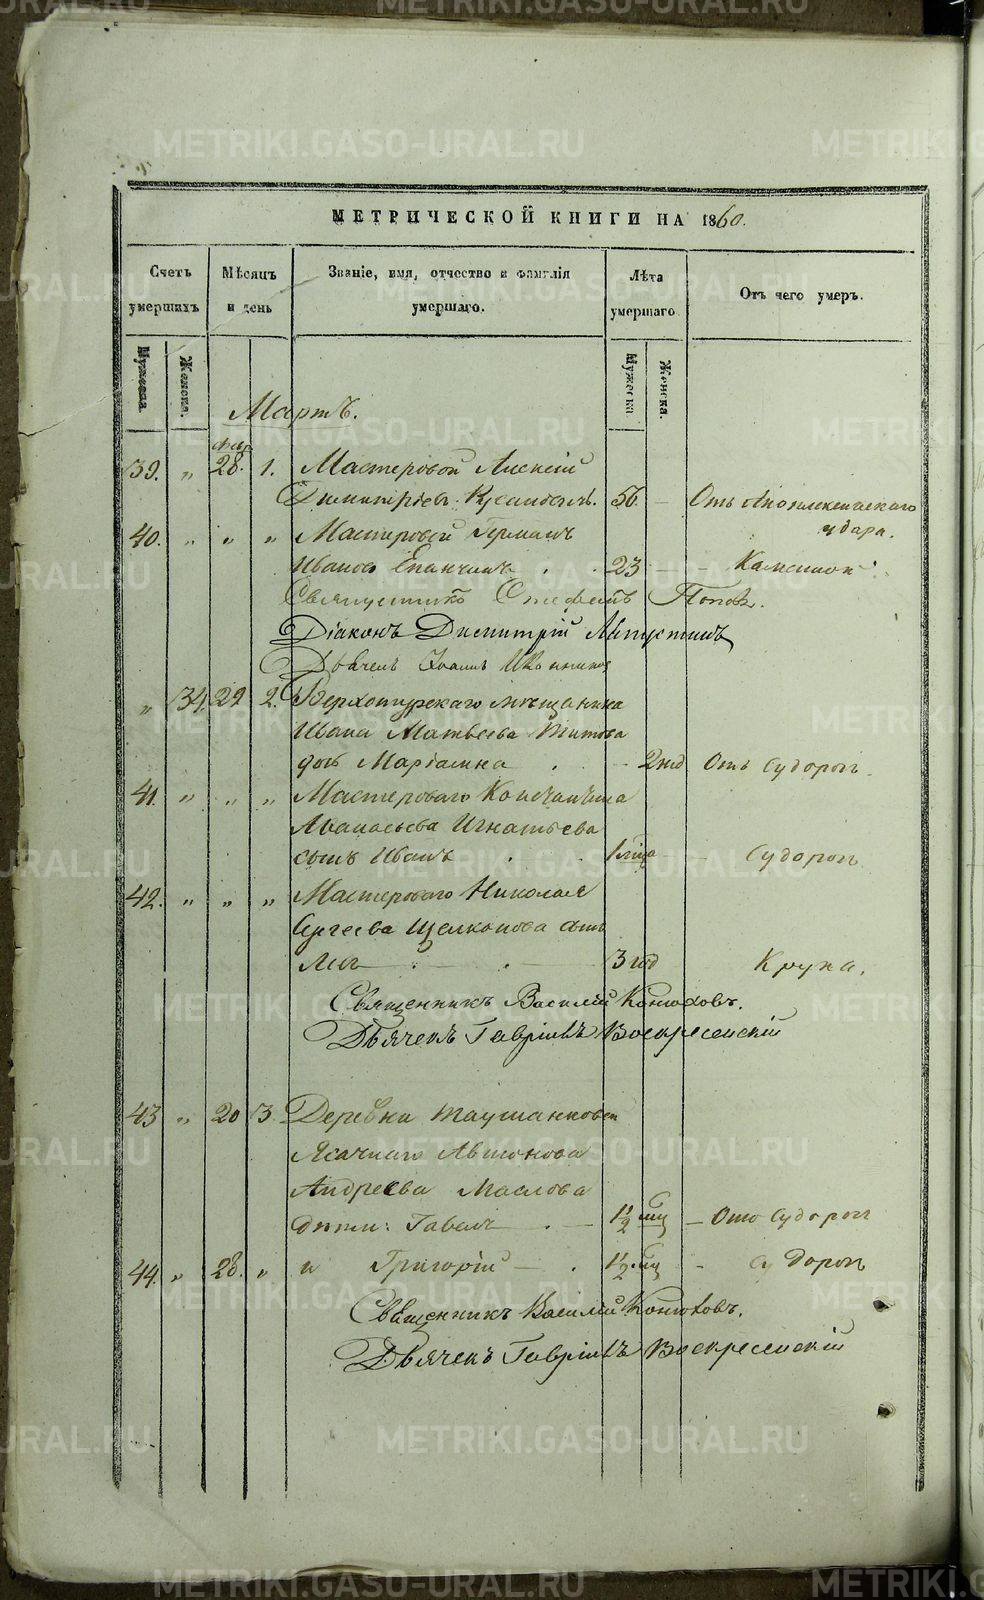 МЕТРИЧЕСКОЙ КНИГИ НА 1860.
Счетъ умершихъ
Мѣсяцъ и день
Званіе, имя, отчество и фамилія умершаго.
Лѣта умершаго
Отъ чего умеръ.
Мужеска.
Женска.
Мужеска
Женска.
Мартъ.
Февр
39. „ 28. 1. Мастеровой Алексій
Димитріевъ 56. — Отъ Апоплексическаго
удара.
40. „ „ „ Мастеровой Германъ
Ивановъ Епанчинъ . . 23 — - Каменной
Священникъ Стефанъ Поповъ.
Діаконъ Димитрій
Дьячекъ Іоаннъ
„ 34 29 2. Верхотурскаго мѣщанина
Ивана Матвѣева Титова
дочь Маріамна . - 2 нед Отъ Судорогъ.
41. „ „ „ Мастероваго Константина
Аѳанасьева Игнатьева
сынъ Иванъ . . 1 мѣс - Судорогъ
42. „ „ „ Мастероваго Николая
Сергеева Щелконова сынъ
Левъ . . 3 год Крупа.
Священникъ Василій Конюховъ.
Дьячекъ Гавріилъ Воскресенскій
43 „ 20 3. Деревни Таушканковой
Ясачнаго Автонома
Андреева Маслова
дѣти: Павелъ . — 1 1/2 мц — Ото Судорогъ
44. „ 28. „ и Григорій — . 1 1/2 мц - Судорогъ
Священникъ Василій Конюховъ.
Дьячекъ Гавріилъ Воскресенскій
METRIKI.GASO-URAL.RU